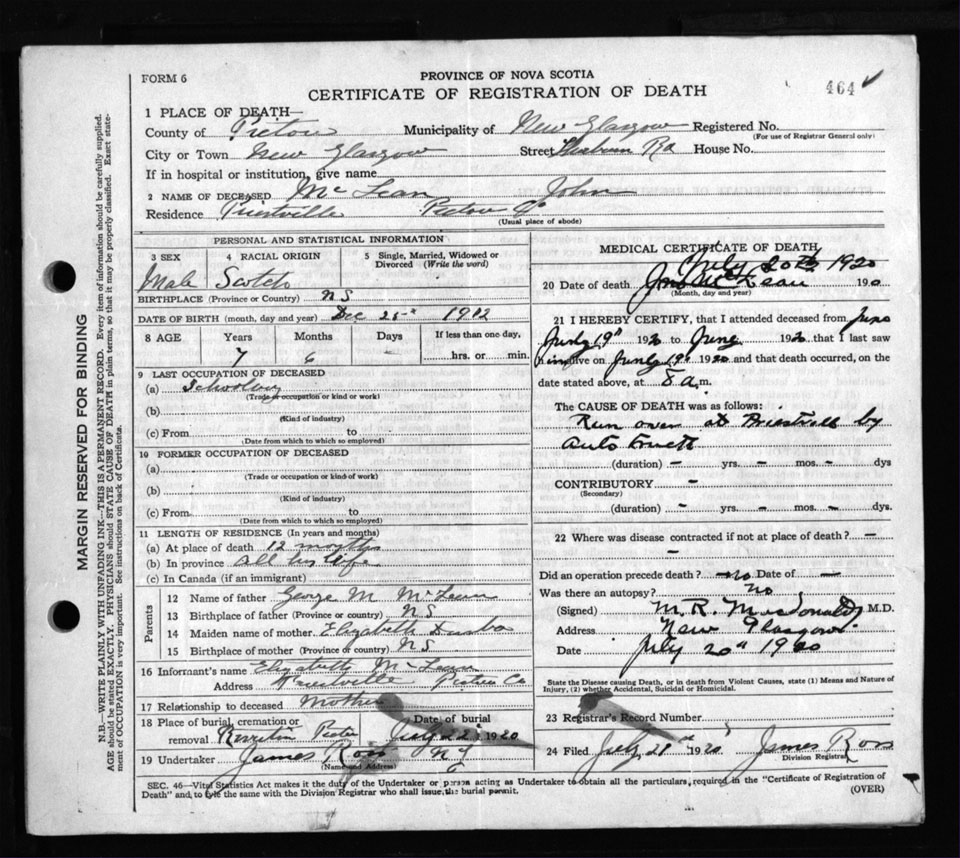 FORM 6
PROVINCE OF NOVA SCOTIA
CERTIFICATE OF REGISTRATION OF DEATH
464
1 PLACE OF DEATH—
County of Pictou Municipality of New Glasgow Registered No.
(For use of Registrar General only)
City or Town New Glasgow Street Rd House No.
If in hospital or institution, give name
2 NAME OF DECEASED McLean John
Residence Priestville Pictou Co
(Usual place of abode)
PERSONAL AND STATISTICAL INFORMATION
3 SEX 4 RACIAL ORIGIN 5 Single, Married, Widowed or Divorced (Write the word)
Male Scotch
BIRTHPLACE (Province or Country) NS
DATE OF BIRTH (month, day and year) Dec 25th 1912
8 AGE Years Months Days If less than one day,
7 6 hrs. or min.
9 LAST OCCUPATION OF DECEASED
(a) Schoolboy
(Trade or occupation or kind or work)
(b)
(Kind of industry)
(c) From to
(Date from which to which so employed)
10 FORMER OCCUPATION OF DECEASED
(a)
(Trade or occupation or kind of work)
(b)
(Kind of industry)
(c) From to
(Date from which to which so employed)
11 LENGTH OF RESIDENCE (In years and months)
(a) At place of death 12 months
(b) In province all his life
(c) In Canada (if an immigrant)
Parents
12 Name of father George M McLean
13 Birthplace of father (Province or country) NS
14 Maiden name of mother Elizabeth
15 Birthplace of mother (Province or country) NS
16 Informant's name Elizabeth McLean
Address Priestville Pictou Co
17 Relationship to deceased Mother
18 Place of burial, cremation or removal Date of burial
July 22 1920
19 Undertaker James Ross N G
(Name and Address)
MEDICAL CERTIFICATE OF DEATH
July 20th 1920
20 Date of death Jno McLean 190
(Month, day and year)
21 I HEREBY CERTIFY, that I attended deceased from June
July 19th 1920 to June 1920 that I last saw
him alive on July 19th 1920 and that death occurred, on the
date stated above, at 8 a.m.
The CAUSE OF DEATH was as follows:
Run over at Priestville by
Auto
(duration) – yrs. – mos. – dys
CONTRIBUTORY –
(Secondary)
(duration) – yrs. – mos. – dys.
22 Where was disease contracted if not at place of death? –
Did an operation precede death? no Date of –
Was there an autopsy? no
(Signed) M. R. Macdonald M.D.
Address New Glasgow
Date July 20th 1920
State the Disease causing Death, or in death from Violent Causes, state (1) Means and Nature of
Injury, (2) whether Accidental, Suicidal or Homicidal.
23 Registrar's Record Number
24 Filed July 21st 1920 James Ross
Division Registrar
SEC. 46—Vital Statistics Act makes it the duty of the Undertaker or person acting as Undertaker to obtain all the particulars, required in the "Certificate of Registration of
Death" and to file the same with the Division Registrar who shall issue the burial permit. (OVER)
MARGIN RESERVED FOR BINDING
N.B.—WRITE PLAINLY WITH UNFADING INK—THIS IS A PERMANENT RECORD. Every item of information should be carefully supplied.
AGE should be stated EXACTLY. PHYSICIANS should STATE CAUSE OF DEATH in plain terms, so that it may be properly classified. Exact statement of OCCUPATION is very important. See instructions on back of Certificate.